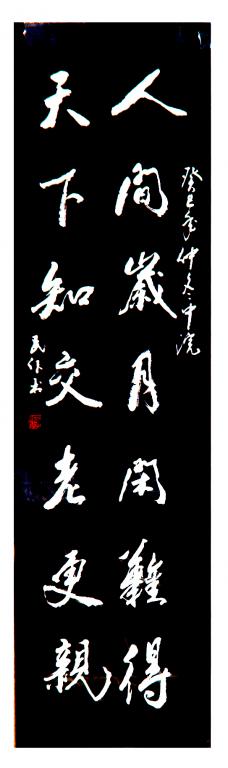 人間歲月閑難得
天下知交老更親
癸巳年仲冬中浣